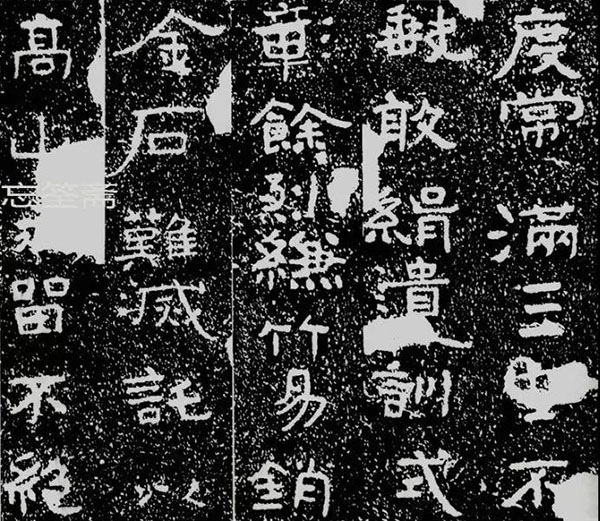 度常滿三史不
敢緝遺訓式
彰餘烈縑竹易銷
金石難滅託以
高山永留不絕
忘筌斋